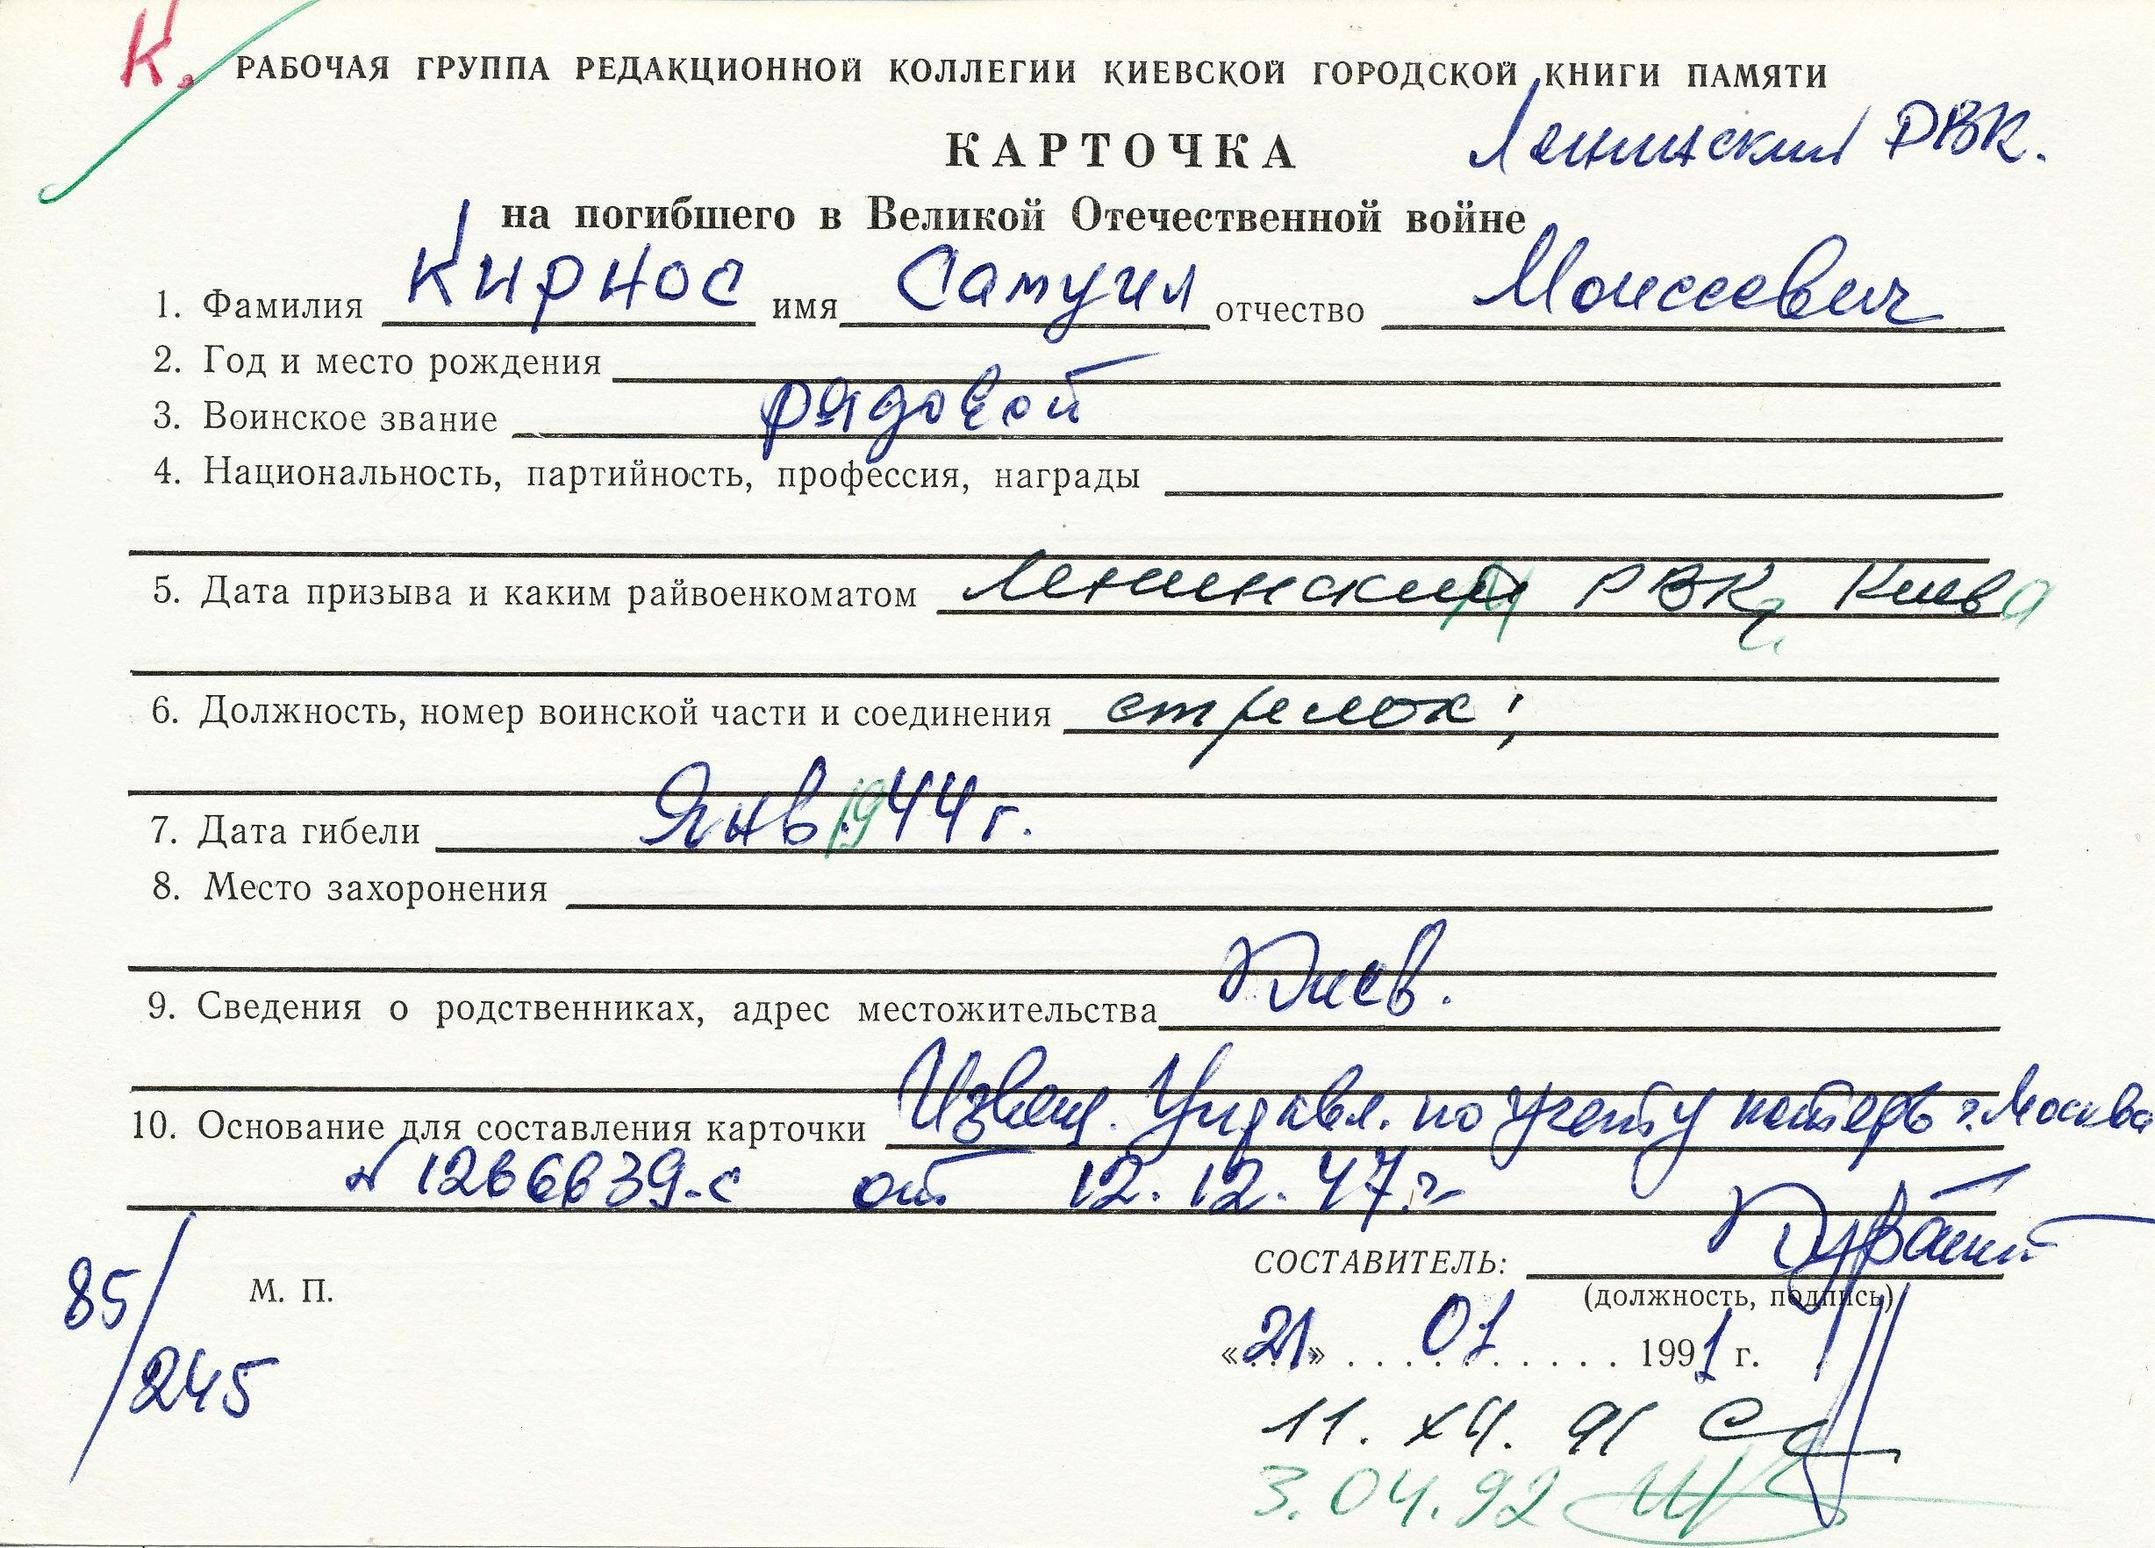 К.
РАБОЧАЯ ГРУППА РЕДАКЦИОННОЙ КОЛЛЕГИИ КИЕВСКОЙ ГОРОДСКОЙ КНИГИ ПАМЯТИ
Ленинский РВК.
КАРТОЧКА
на погибшего в Великой Отечественной войне
1. Фамилия Кирнос имя Самуил отчество Моисеевич
2. Год и место рождения
3. Воинское звание рядовой
4. Национальность, партийность, профессия, награды
5. Дата призыва и каким райвоенкоматом Ленинский РВК г. Киева
6. Должность, номер воинской части и соединения стрелок;
7. Дата гибели Янв. 1944 г.
8. Место захоронения
9. Сведения о родственниках, адрес местожительства Киев.
10. Основание для составления карточки Извещ. Управл. по учету потерь г. Москва
N 1266639-с от 12.12.47 г.
85/245
М. П.
СОСТАВИТЕЛЬ:
(должность, подпись)
«21» 01 1991 г.
11. 91
3.04.92